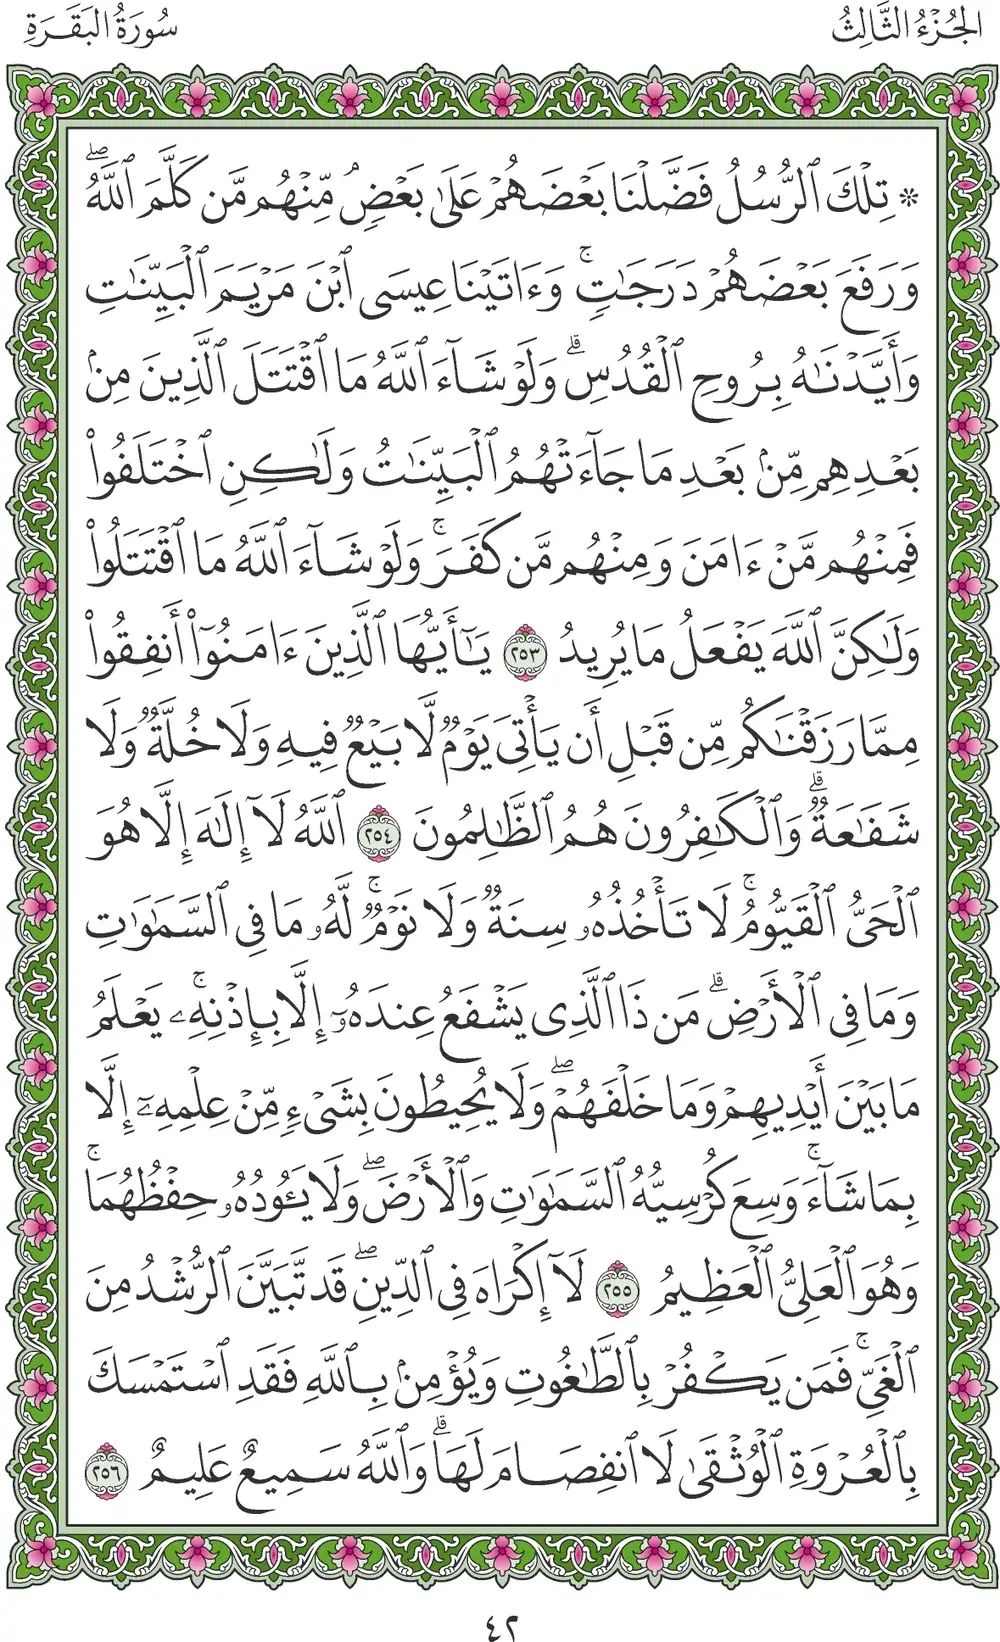 الجُزْءُ الثَّالِثُ
سُورَةُ البَقَرَةِ
۞ تِلْكَ ٱلرُّسُلُ فَضَّلْنَا بَعْضَهُمْ عَلَىٰ بَعْضٍۘ مِّنْهُم مَّن كَلَّمَ ٱللَّهُۖ
وَرَفَعَ بَعْضَهُمْ دَرَجَٰتٖۚ وَءَاتَيْنَا عِيسَى ٱبْنَ مَرْيَمَ ٱلْبَيِّنَٰتِ
وَأَيَّدْنَٰهُ بِرُوحِ ٱلْقُدُسِۗ وَلَوْ شَآءَ ٱللَّهُ مَا ٱقْتَتَلَ ٱلَّذِينَ مِنۢ
بَعْدِهِم مِّنۢ بَعْدِ مَا جَآءَتْهُمُ ٱلْبَيِّنَٰتُ وَلَٰكِنِ ٱخْتَلَفُوا۟
فَمِنْهُم مَّنْ ءَامَنَ وَمِنْهُم مَّن كَفَرَۚ وَلَوْ شَآءَ ٱللَّهُ مَا ٱقْتَتَلُوا۟
وَلَٰكِنَّ ٱللَّهَ يَفْعَلُ مَا يُرِيدُ ٢٥٣ يَٰٓأَيُّهَا ٱلَّذِينَ ءَامَنُوٓا۟ أَنفِقُوا۟
مِمَّا رَزَقْنَٰكُم مِّن قَبْلِ أَن يَأْتِىَ يَوْمٌ لَّا بَيْعٌ فِيهِ وَلَا خُلَّةٌ وَلَا
شَفَٰعَةٌۗ وَٱلْكَٰفِرُونَ هُمُ ٱلظَّٰلِمُونَ ٢٥٤ ٱللَّهُ لَآ إِلَٰهَ إِلَّا هُوَ
ٱلْحَىُّ ٱلْقَيُّومُۚ لَا تَأْخُذُهُۥ سِنَةٌ وَلَا نَوْمٌۚ لَّهُۥ مَا فِى ٱلسَّمَٰوَٰتِ
وَمَا فِى ٱلْأَرْضِۗ مَن ذَا ٱلَّذِى يَشْفَعُ عِندَهُۥٓ إِلَّا بِإِذْنِهِۦۚ يَعْلَمُ
مَا بَيْنَ أَيْدِيهِمْ وَمَا خَلْفَهُمْۖ وَلَا يُحِيطُونَ بِشَىْءٍ مِّنْ عِلْمِهِۦٓ إِلَّا
بِمَا شَآءَۚ وَسِعَ كُرْسِيُّهُ ٱلسَّمَٰوَٰتِ وَٱلْأَرْضَۖ وَلَا يَـُٔودُهُۥ حِفْظُهُمَاۚ
وَهُوَ ٱلْعَلِىُّ ٱلْعَظِيمُ ٢٥٥ لَآ إِكْرَاهَ فِى ٱلدِّينِۖ قَد تَّبَيَّنَ ٱلرُّشْدُ مِنَ
ٱلْغَىِّۚ فَمَن يَكْفُرْ بِٱلطَّٰغُوتِ وَيُؤْمِنۢ بِٱللَّهِ فَقَدِ ٱسْتَمْسَكَ
بِٱلْعُرْوَةِ ٱلْوُثْقَىٰ لَا ٱنفِصَامَ لَهَاۗ وَٱللَّهُ سَمِيعٌ عَلِيمٌ ٢٥٦
٤٢